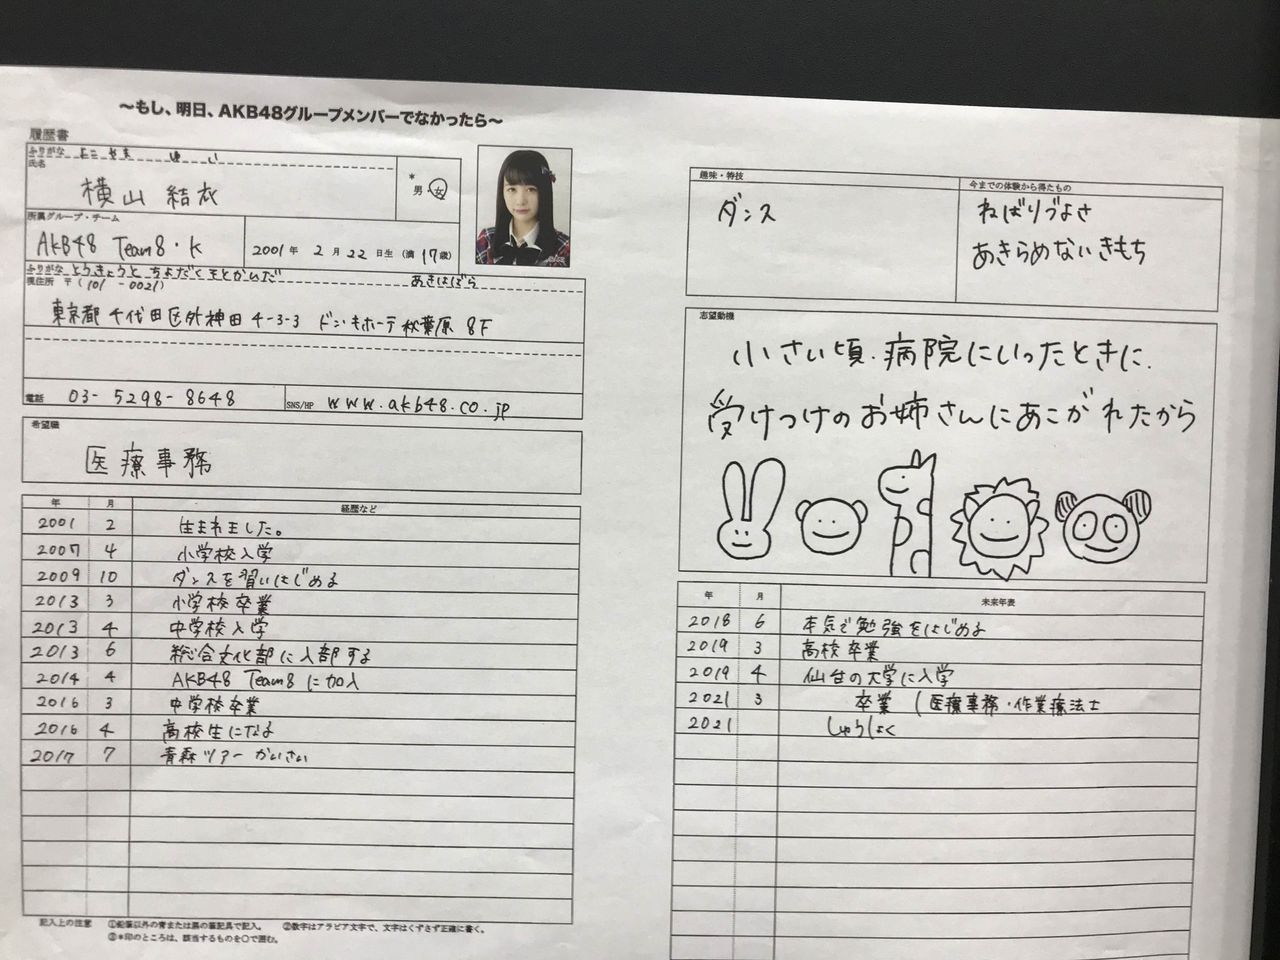 ～もし、明日、AKB48グループメンバーでなかったら～
履歴書
ふりがな よこ やま ゆ い
氏名
横山 結衣
*
男・女
所属グループ・チーム
AKB48 Team8・K
2001年 2月 22日生(満 17歳)
ふりがな とうきょうと ちよだく そとかんだ あきはばら
現住所 〒(101 -0021)
東京都千代田区外神田4-3-3 ドン・キホーテ秋葉原 8F
電話 03-5298-8648
SNS/HP www.akb48.co.jp
希望職
医療事務
年 月 経歴など
2001 2 生まれました。
2007 4 小学校入学
2009 10 ダンスを習いはじめる
2013 3 小学校卒業
2013 4 中学校入学
2013 6 総合文化部に入部する
2014 4 AKB48 Team8に加入
2016 3 中学校卒業
2016 4 高校生になる
2017 7 青森ツアーかいさい
記入上の注意 ①鉛筆以外の青または黒の筆記具で記入。 ②数字はアラビア文字で、文字はくずさず正確に書く。
③*印のところは、該当するものを○で囲む。
趣味・特技
ダンス
今までの体験から得たもの
ねばりづよさ
あきらめないきもち
志望動機
小さい頃、病院にいったときに、
受けつけのお姉さんにあこがれたから
年 月 未来年表
2018 6 本気で勉強をはじめる
2019 3 高校卒業
2019 4 仙台の大学に入学
2021 3 卒業 (医療事務・作業療法士
2021 しゅうしょく